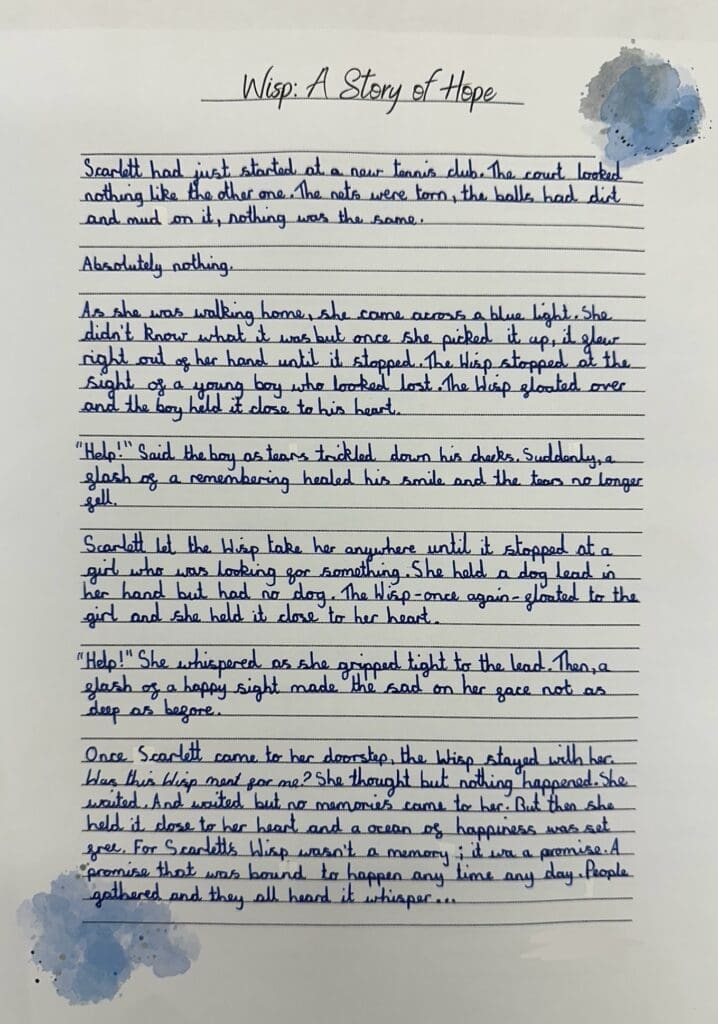 Wisp: A Story of Hope
Scarlett had just started at a new tennis club. The court looked
nothing like the other one. The nets were torn, the balls had dirt
and mud on it, nothing was the same.
Absolutely nothing.
As she was walking home, she came across a blue light. She
didn't know what it was but once she picked it up, it flew
right out of her hand until it stopped. The Wisp stopped at the
sight of a young boy who looked lost. The Wisp floated over
and the boy held it close to his heart.
"Help!" Said the boy as tears trickled down his cheeks. Suddenly, a
flash of a remembering healed his smile and the tears no longer
fell.
Scarlett let the Wisp take her anywhere until it stopped at a
girl who was looking for something. She held a dog lead in
her hand but had no dog. The Wisp-once again-floated to the
girl and she held it close to her heart.
"Help!" She whispered as she gripped tight to the lead. Then, a
flash of a happy sight made the sad on her face not as
deep as before.
Once Scarlett came to her doorstep, the Wisp stayed with her.
Was this Wisp ment for me? She thought but nothing happened. She
waited. And waited but no memories came to her. But then she
held it close to her heart and a ocean of happiness was set
free. For Scarlett's Wisp wasn't a memory; it wa a promise. A
promise that was bound to happen any time any day. People
gathered and they all heard it whisper...